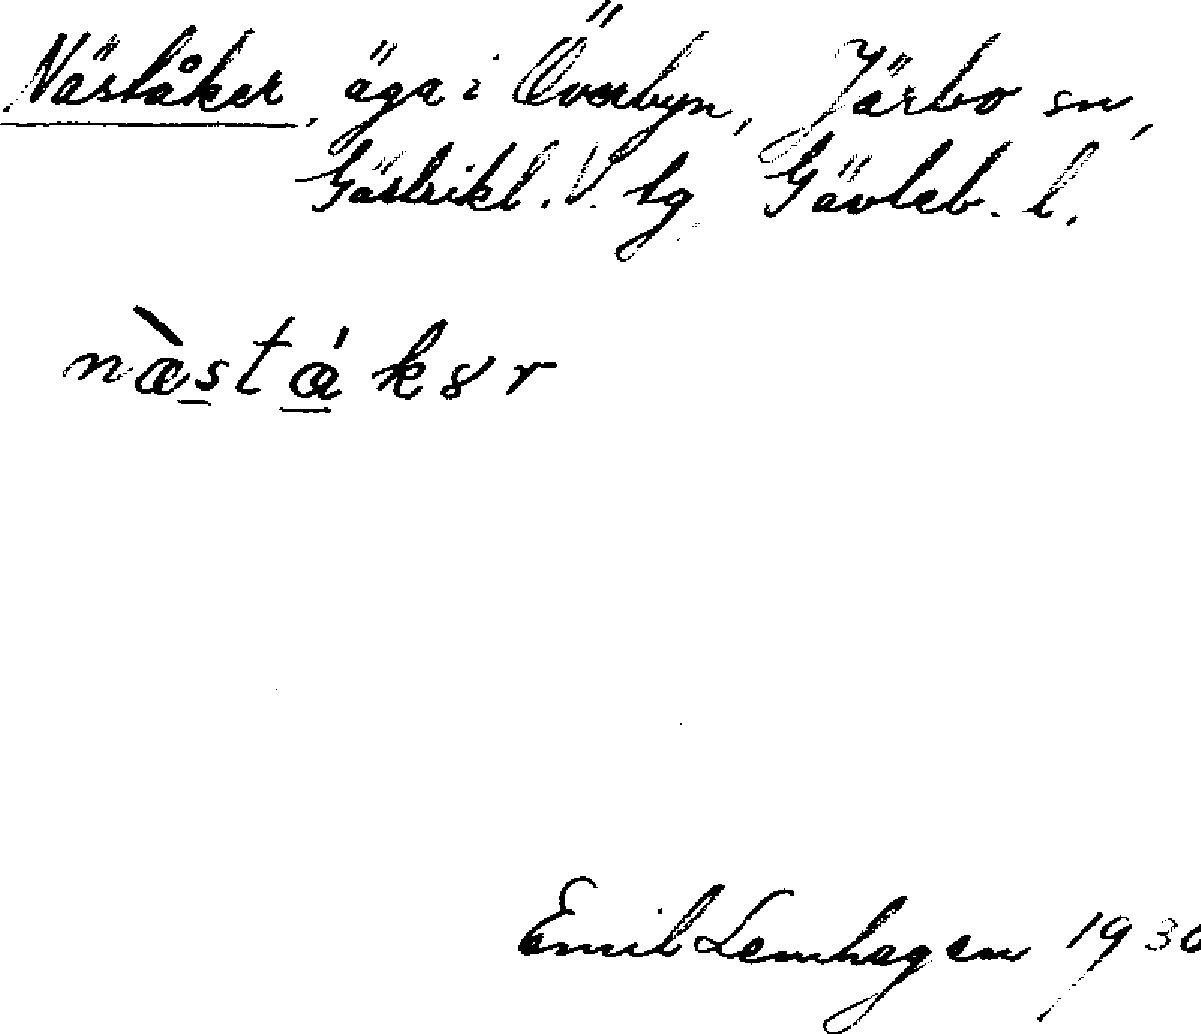 Näståker, äga i Överbyn, Järbo sn,
Gästrikl. V. tg Gävleb. l.
næ̀stǻkər
Emil Lemhagen 1930